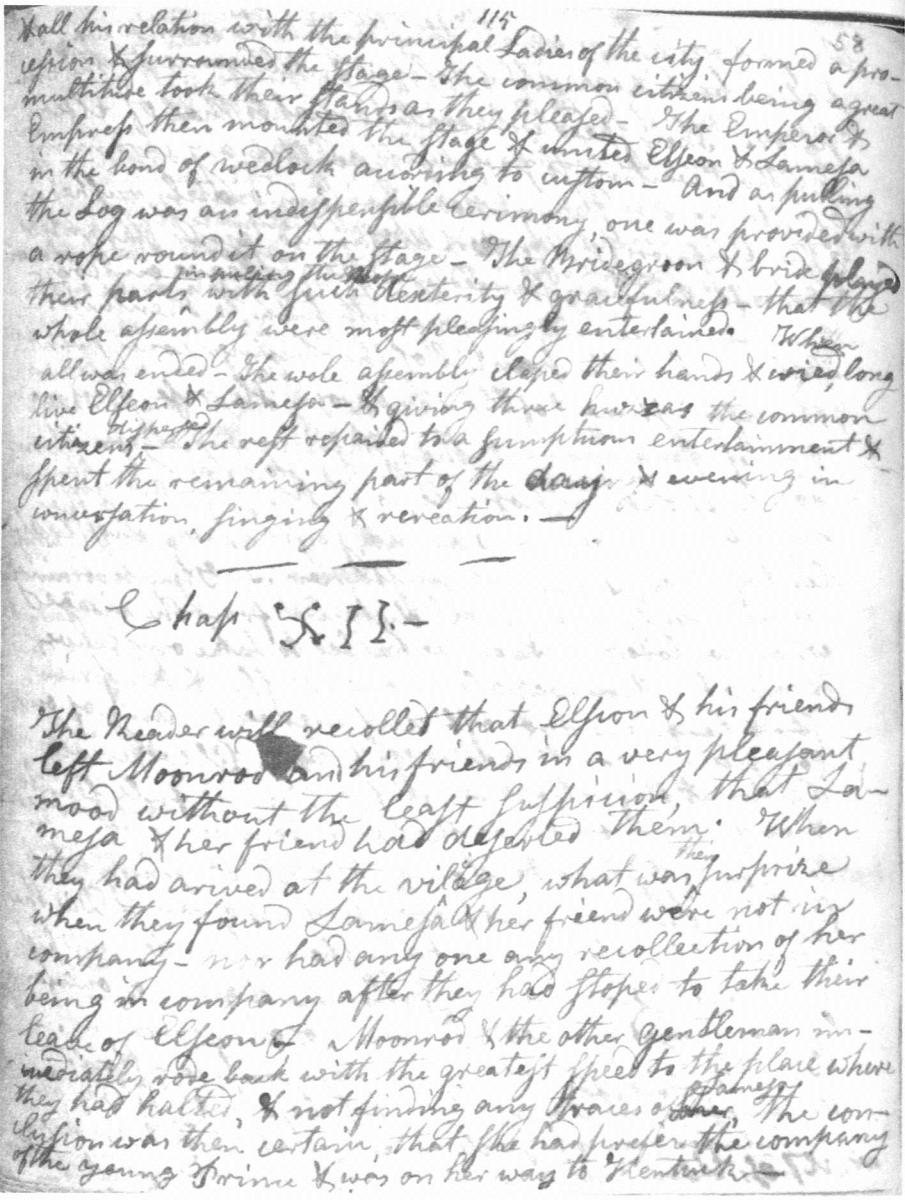 115
58
& all his relation with the principal Ladies of the city formed a pro-
cession & surrounded the stage - The common citizens being a great
multitude took their stands as they pleased - The Emperor &
Empress then mounted the stage & united Elseon & Lamesa
in the bond of wedlock according to custom - And as pulling
the Log was an indispensible cerimony, one was provided with
a rope round it on the stage - The Bridegroon & bride played
in pulling the Rope
their parts with such dexterity & gracefulness - that the
whole assembly were most pleasingly entertained. When
all was ended - The wole assembly claped their hands & cried, long
live Elseon & Lamesa - & giving three huzzas the common
dispersed
citizens, - The rest repaired to a sumptuous entertainment &
spent the remaining part of the day & evening in
conversation, singing & recreation. —
Chap XII. -
The Reader will recollet that Elseon & his friends
left Moonrod and his friends in a very pleasant
mood without the least suspicion, that La-
mesa & her friend had deserted them. When
they had arived at the vilage, what was surprize
they
when they found Lamesa & her friend were not in
company - nor had any one any recollection of her
being in company after they had stoped to take their
leave of Elseon. Moonrod & the other gentleman im-
mediately rode back with the greatest speed to the place where
they had halted, & not finding any traces of The con-
Lamesa
clusion was then certain, that she had prefer the company
of the young Prince & was on her way to Kentuck —